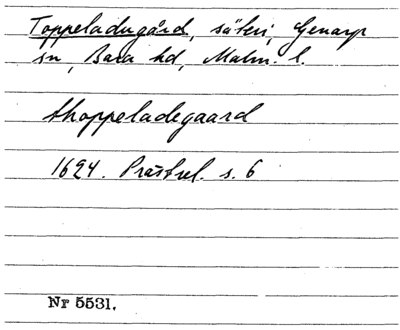 Toppeladugård, säteri, Genarp
sn, Bara hd, Malm. l.
thoppeladegaard
1624. Prästrel. s. 6
Nr 5531.